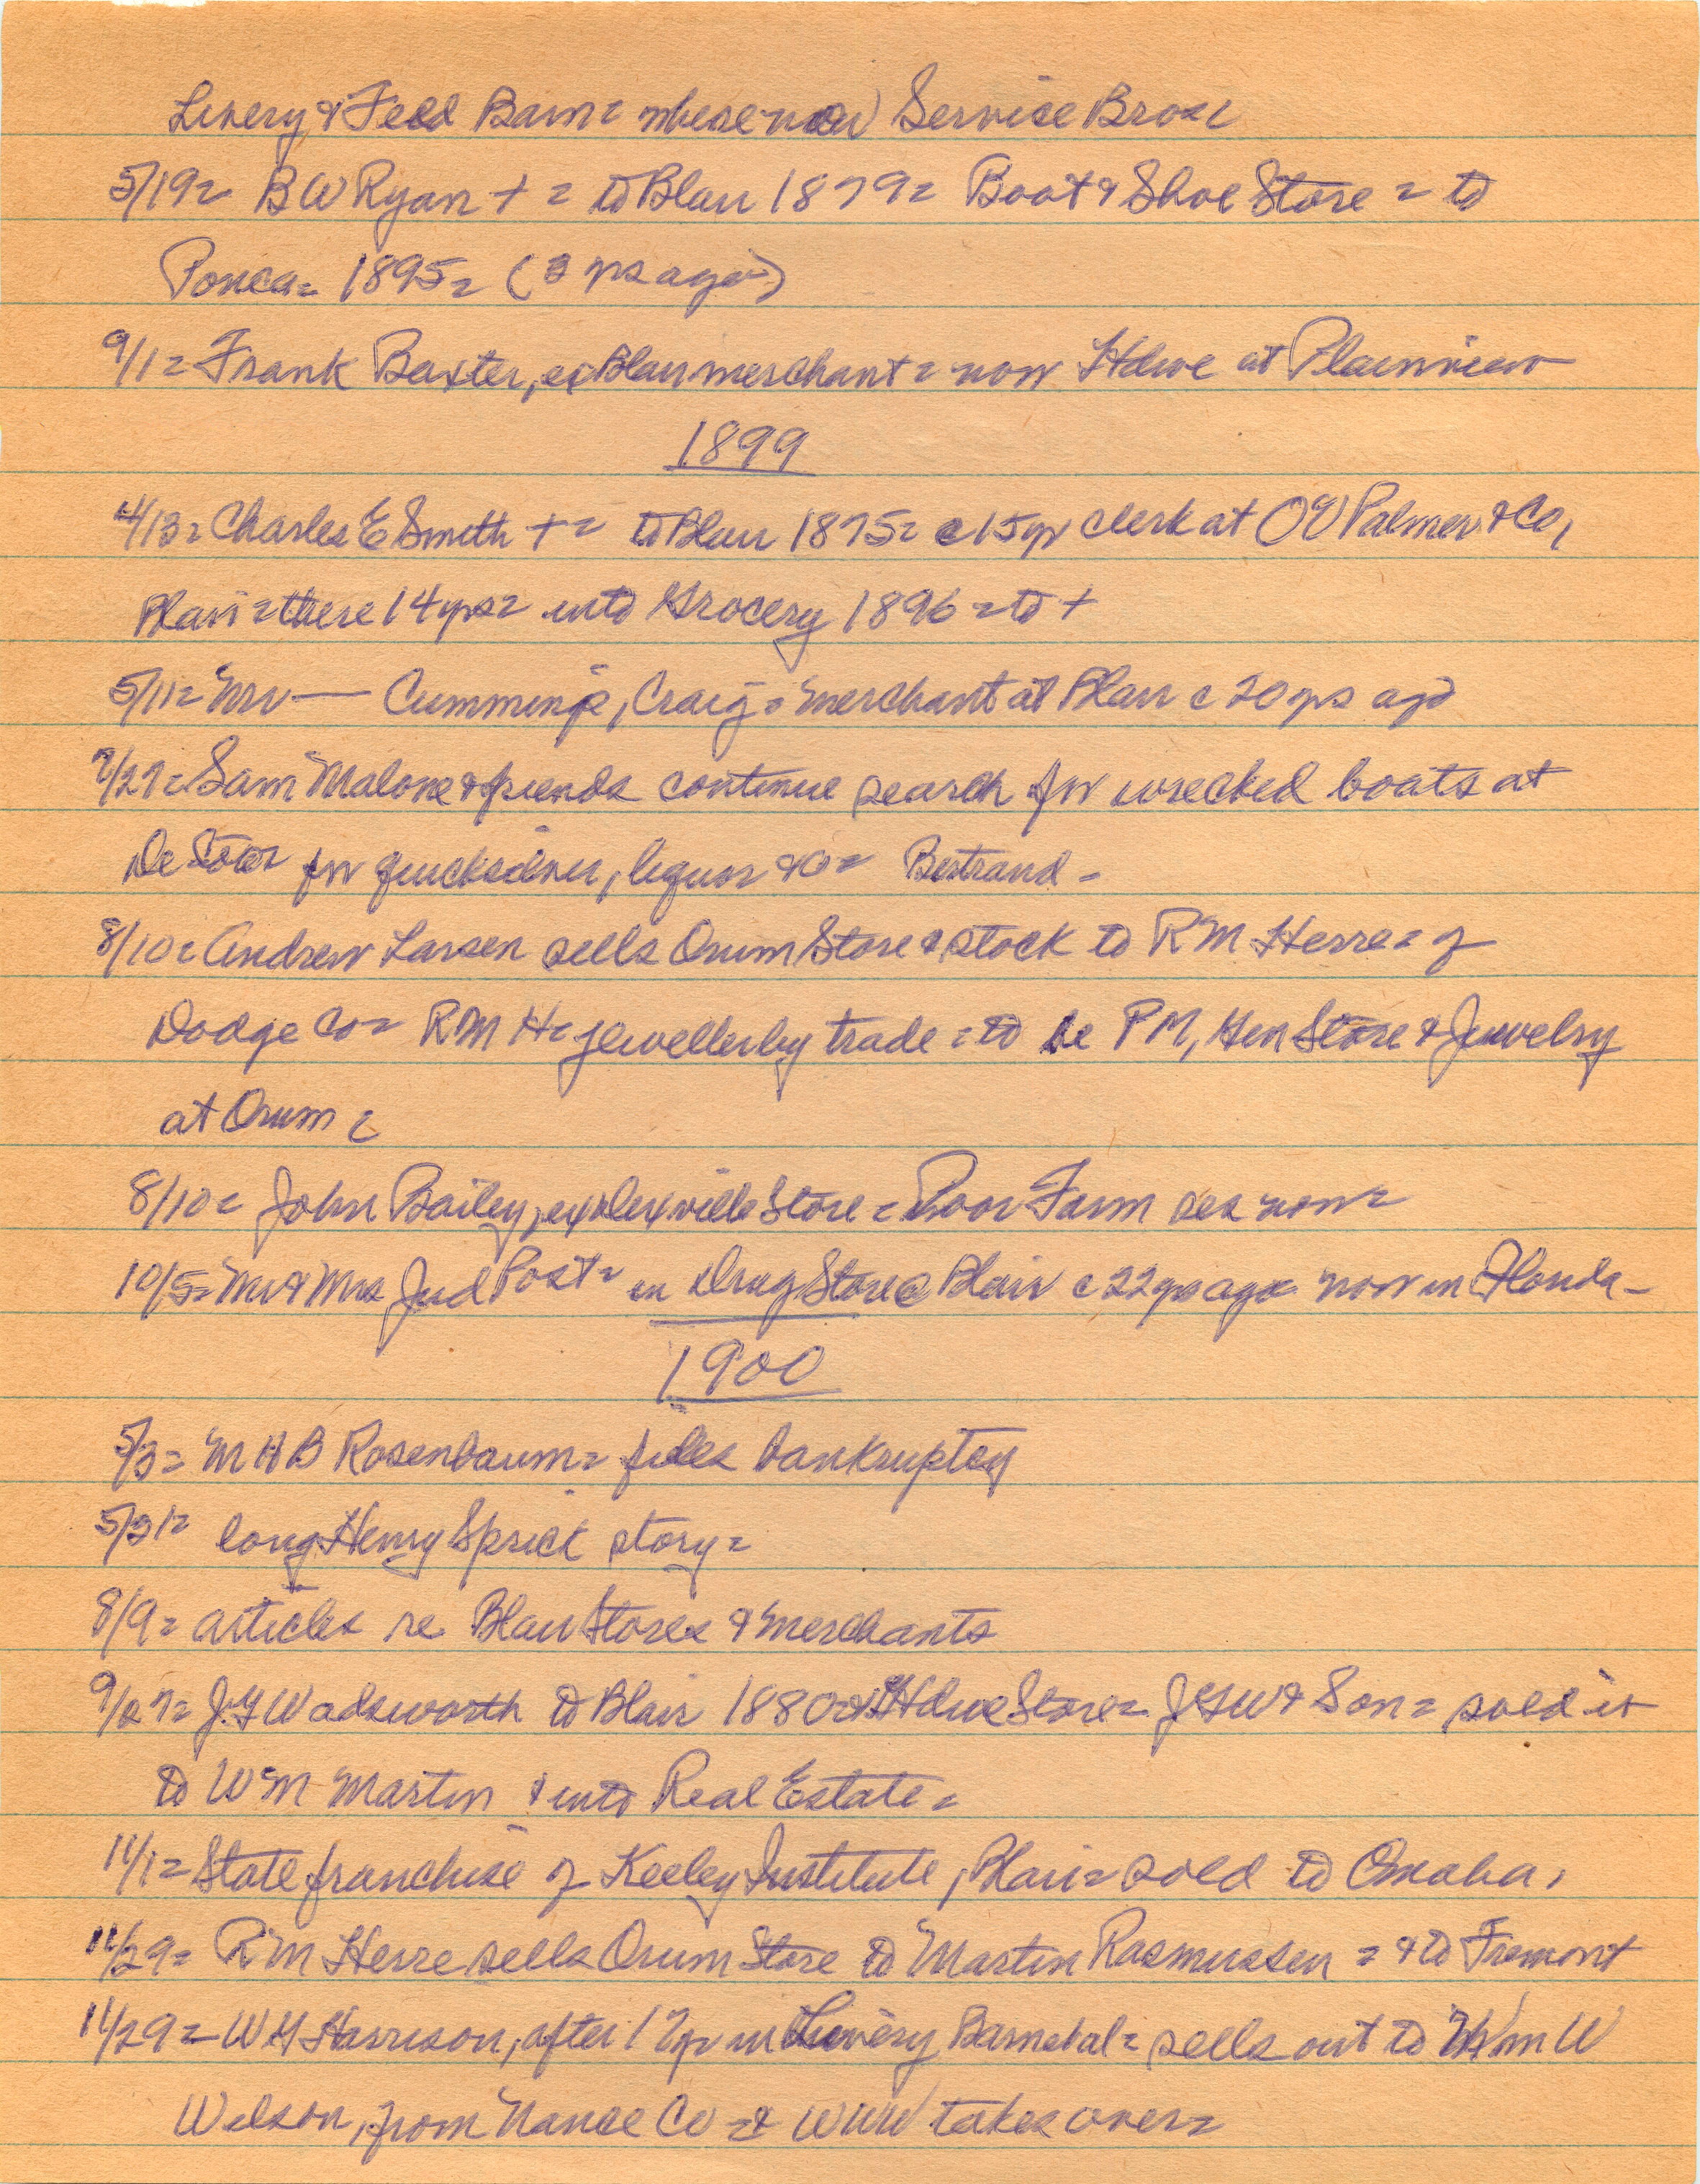 Livery & Feed Barn = where now Service Bros =
5/19 = B W Ryan + = to Blair 1879 = Boot & Shoe Store = to
Ponca = 1895 = (3 yrs ago)
9/1 = Frank Baxter, ex Blair merchant = now Hdwe at Plainview
1899
4/13 = Charles E Smith + = to Blair 1875 = c 15 yr clerk at O V Palmer & Co,
Blair = there 14 yrs = into Grocery 1896 = to +
5/11 = Mr — Cummings, Craig = merchant at Blair c 20 yrs ago
7/27 = Sam Malone & friends continue search for wrecked boats at
De Soto = for quicksilver, liquor &c = Bertrand -
8/10 = Andrew Larsen sells Orum Store & stock to R M Herre = of
Dodge Co = R M H = jeweller by trade = to be PM, Gen Store & Jewelry
at Orum =
8/10 = John Bailey, ex store = Poor Farm now =
10/5 = Mr & Mrs Jud Post = in Drug Store @ Blair c 22 yrs ago = now in Florida -
1900
5/3 = M H B Rosenbaum = files bankruptcy
5/31 = long Henry Sprick story =
8/9 = articles re Blair Stores & merchants
9/27 = J. G Wadsworth to Blair 1880 = Hdwe Store = J G W & Son = sold it
to W M Martin & into Real Estate =
11/1 = State franchise of Keeley Institute, Blair = sold to Omaha,
11/29 = R M Herre sells Orum Store to Martin Rasmussen = & to Fremont
11/29 = W H Harrison, after 12 yr in Livery Barn = sells out to Wm W
Wilson, from Nance Co = & WWW takes over =